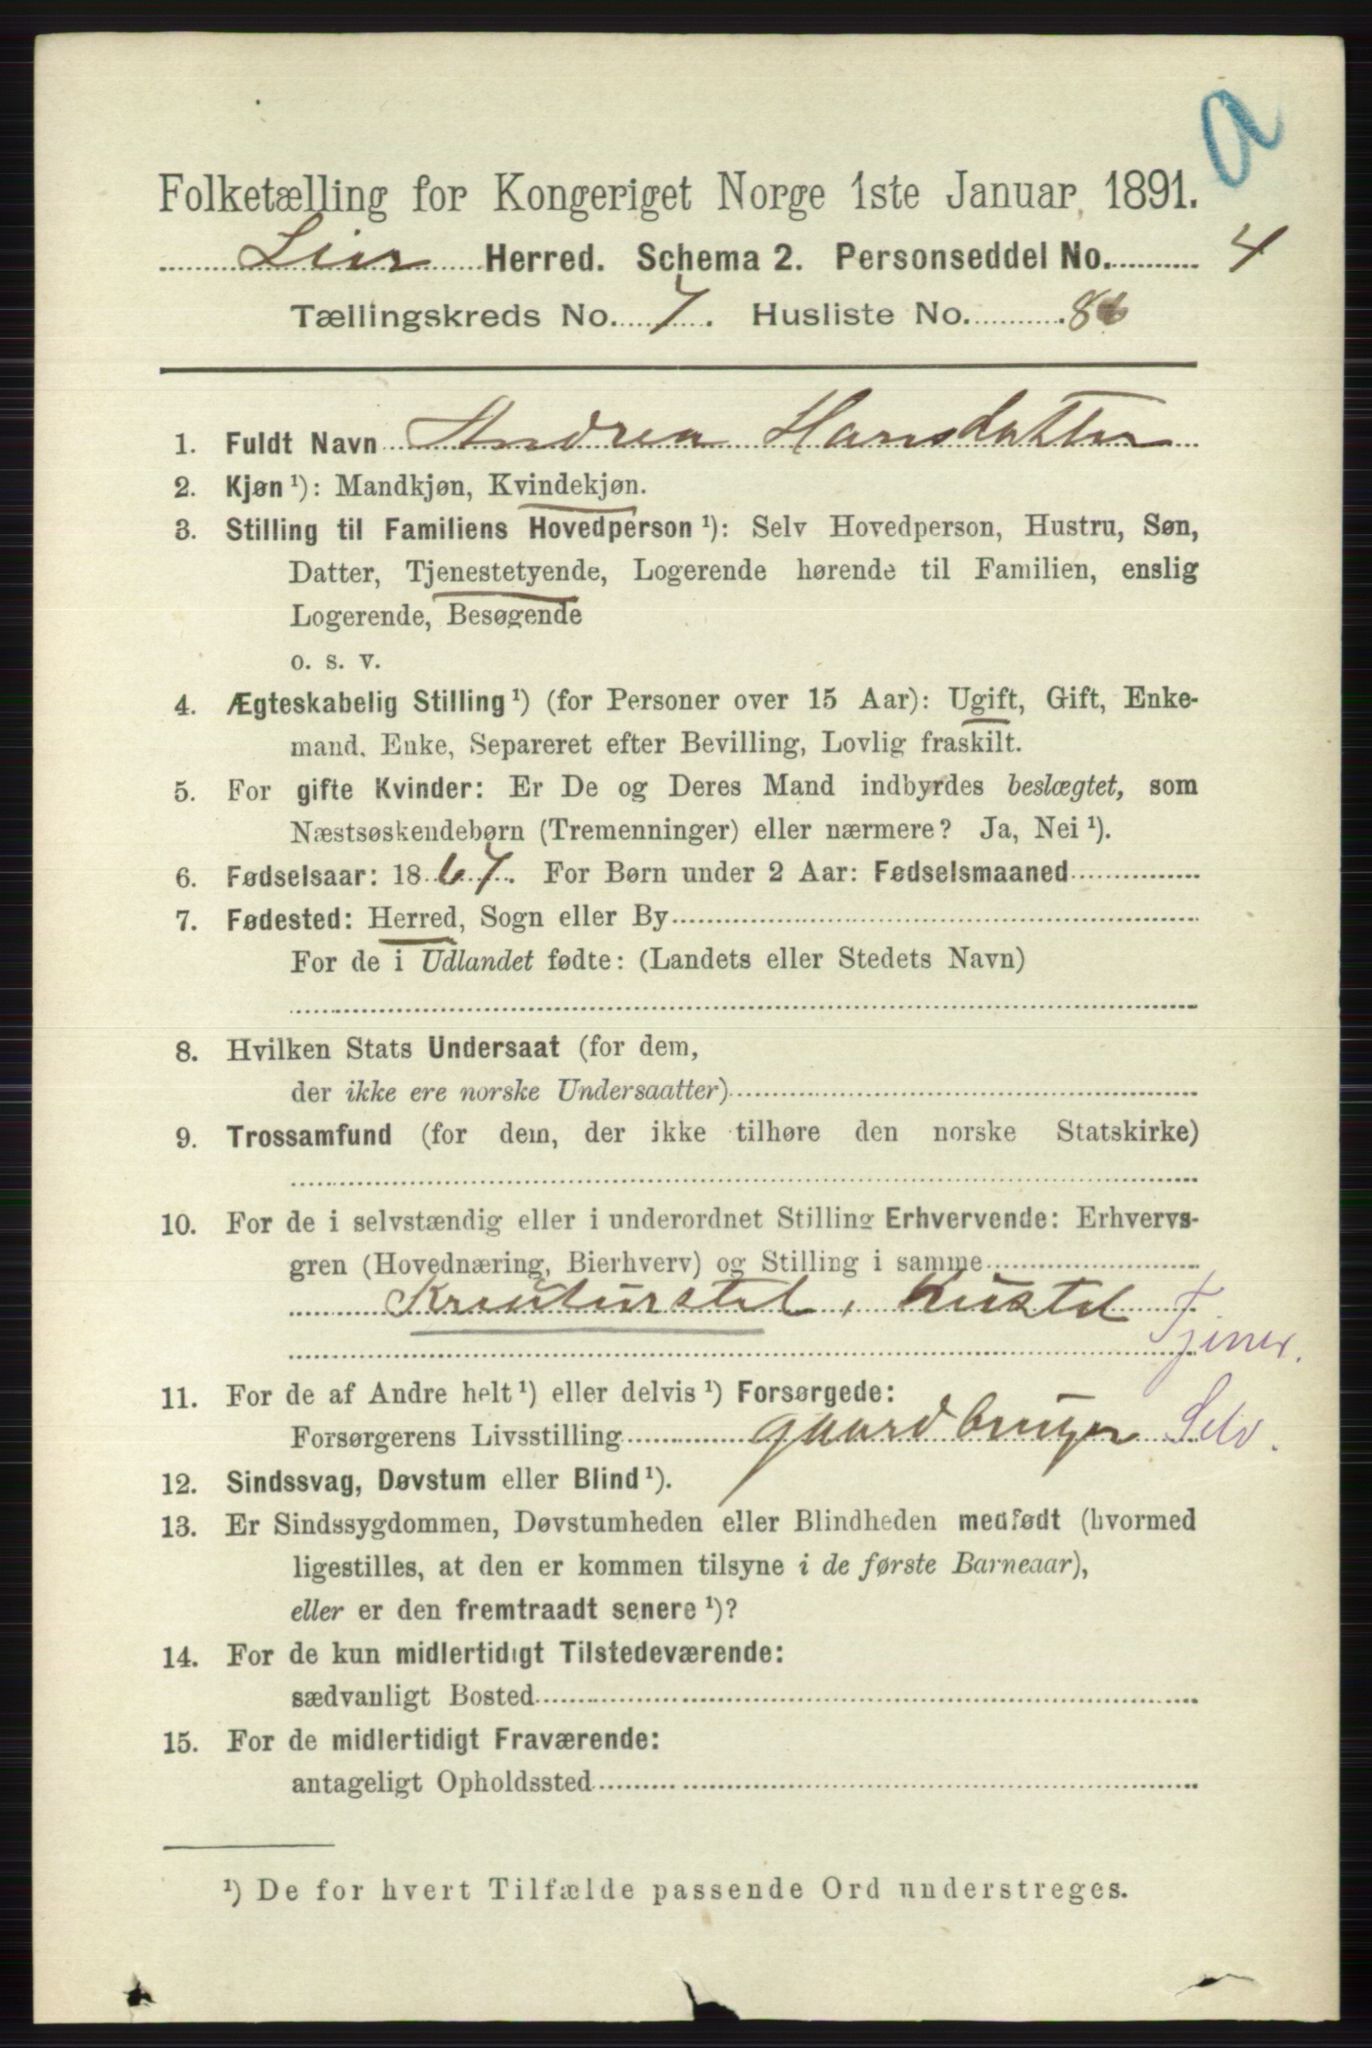 a
Folketælling for Kongeriget Norge 1ste Januar 1891.
Lier Herred. Schema 2. Personseddel No. 4
Tællingskreds No. 7. Husliste No. 86
1. Fuldt Navn Andrea Hansdatter
2. Kjøn¹): Mandkjøn, Kvindekjøn.
3. Stilling til Familiens Hovedperson¹): Selv Hovedperson, Hustru, Søn,
Datter, Tjenestetyende, Logerende hørende til Familien, enslig
Logerende, Besøgende
o. s. v.
4. Ægteskabelig Stilling¹) (for Personer over 15 Aar): Ugift, Gift, Enke-
mand, Enke, Separeret efter Bevilling, Lovlig fraskilt.
5. For gifte Kvinder: Er De og Deres Mand indbyrdes beslægtet, som
Næstsøskendebørn (Tremenninger) eller nærmere? Ja, Nei¹).
6. Fødselsaar: 1867. For Børn under 2 Aar: Fødselsmaaned
7. Fødested: Herred, Sogn eller By
For de i Udlandet fødte: (Landets eller Stedets Navn)
8. Hvilken Stats Undersaat (for dem,
der ikke ere norske Undersaatter)
9. Trossamfund (for dem, der ikke tilhøre den norske Statskirke)
10. For de i selvstændig eller i underordnet Stilling Erhvervende: Erhvervs-
gren (Hovednæring, Bierhverv) og Stilling i samme
Kreaturstel, Husstel
Tjener.
11. For de af Andre helt¹) eller delvis¹) Forsørgede:
Forsørgerens Livsstilling gaardbruger Selv.
12. Sindssvag, Døvstum eller Blind¹).
13. Er Sindssygdommen, Døvstumheden eller Blindheden medfødt (hvormed
ligestilles, at den er kommen tilsyne i de første Barneaar),
eller er den fremtraadt senere¹)?
14. For de kun midlertidigt Tilstedeværende:
sædvanligt Bosted
15. For de midlertidigt Fraværende:
antageligt Opholdssted
¹) De for hvert Tilfælde passende Ord understreges.